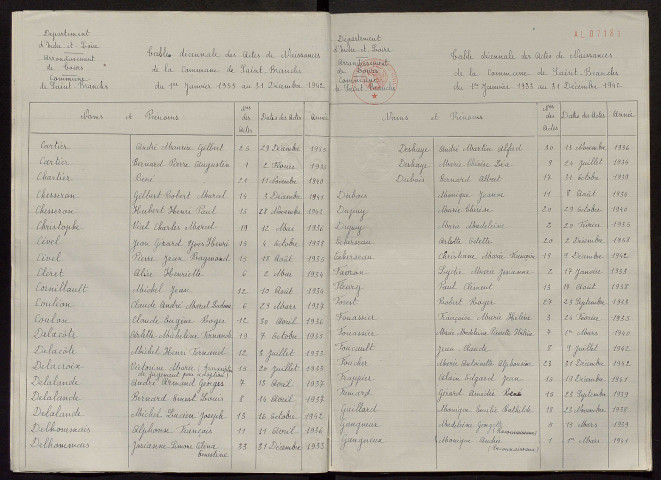 Département
d'Indre et Loire
Arrondissement
de Tours
Commune
de Saint Branchs
Table décennale des Actes de Naissances
de la Commune de Saint Branchs
du 1er Janvier 1933 au 31 Décembre 1942
Noms et Prénoms Nos des Actes Dates des Actes Année
Cartier André Maurice Gilbert 29 Décembre
Cartier Bernard Pierre Augustin 1 2 Février
Chartier René 21 11 Novembre 1940
Chesseron Gilbert Robert Marcel 14 3 Décembre 1941
Chesseron Hubert Henri Paul 15 28 Novembre 1942
Christophe Charles Marcel 19 12 Mai 1936
Civel Jean Gérard Yves Henri 15 4 Octobre 1938
Civel Pierre Jean Raymond 15 18 Août 1935
Cloret Alice Henriette 6 2 Mai 1934
Cornillault Michel Jean 12 10 Août
Couleon Claude André Marcel 6 29 Mars 1937
Coulon Claude Eugène Roger 12 30 Avril 1936
Delacôte Arlette Micheline Fernande 19 7 Octobre 1935
Delacôte Michel Henri Fernand 12 8 Juillet 1933
Delacroix Victorine Marie (transcription de jugement pour adoption) 20 Juillet
Delalande André Armand Georges 7 15 Avril 1937
Delalande Bernard Ernest Louis 8 14 Avril 1937
Delalande Michel Lucien Joseph 13 16 Octobre 1942
Delhommais Alphonse François 11 11 Avril 1936
Delhommais Josianne Simone Ernestine 33 31 Décembre 1933
Département
d'Indre et Loire
Arrondissement
de Tours
Commune
de Saint Branchs
Table décennale des Actes de Naissances
de la Commune de Saint Branchs
du 1er Janvier 1933 au 31 Décembre 1942
Noms et Prénoms Nos des Actes Dates des Actes Année
Deshaye André Martin Alfred 20 14 Novembre 1936
Deshaye Marie Louise 9 24 Juillet 1934
Dubois Bernard Albert 17 31 Octobre 1938
Dubois Monique Jeanne 11 8 Août 1934
Dupuy Marie Thérèse 20 29 Octobre 1940
Dupuy Marie Madeleine 2 20 Février 1935
Arlette Odette 20 2 Décembre 1938
Christiane Marie Françoise 19 9 Décembre 1942
Favron Marie Suzanne 2 17 Janvier 1938
Fleury Paul Clément 13 18 Août 1938
Forest Robert Roger 27 23 Septembre 1933
Fouassier Françoise Marie Hélène 3 24 Février 1935
Fouassier Marie Madeleine 7 1er Mars 1940
Foucault Jean Claude 8 9 Juillet 1942
Foucher Marie Antoinette Alphonsine 23 31 Décembre 1942
Frappier Alain Edgard Jean 14 19 Décembre 1941
Gérard Amédée 15 23 Septembre 1939
Gaillard Monique Emilie Mathilde 18 23 Novembre 1938
Gangneux Madeleine Georgette (reconnaissance) 8 19 Mars 1939
Gangneux Monique (reconnaissance) 1 1er Mars 1941